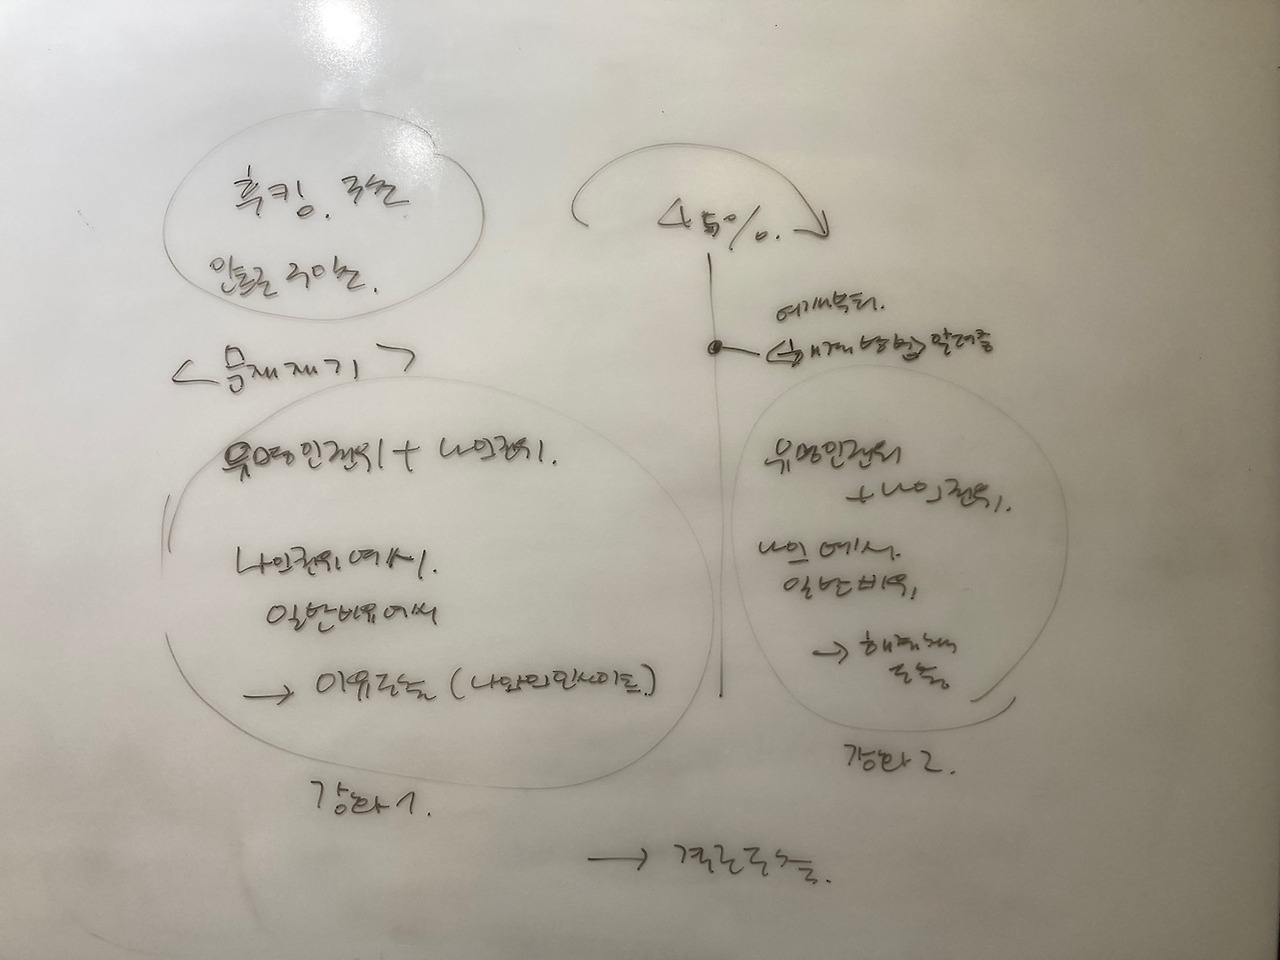 후킹. 구존
인트로 구아존.
<문제제기>
유명인권위 + 나의권위.
나의권위예시.
일반비유예시
→ 이유도출 (나만의인사이트)
강화1.
45%.
여기부터.
<해결방법> 알려줌
유명인권위
+ 나의권위.
나의 예시.
일반비유.
→ 해결책
도출.
강화2.
→ 결론도출.